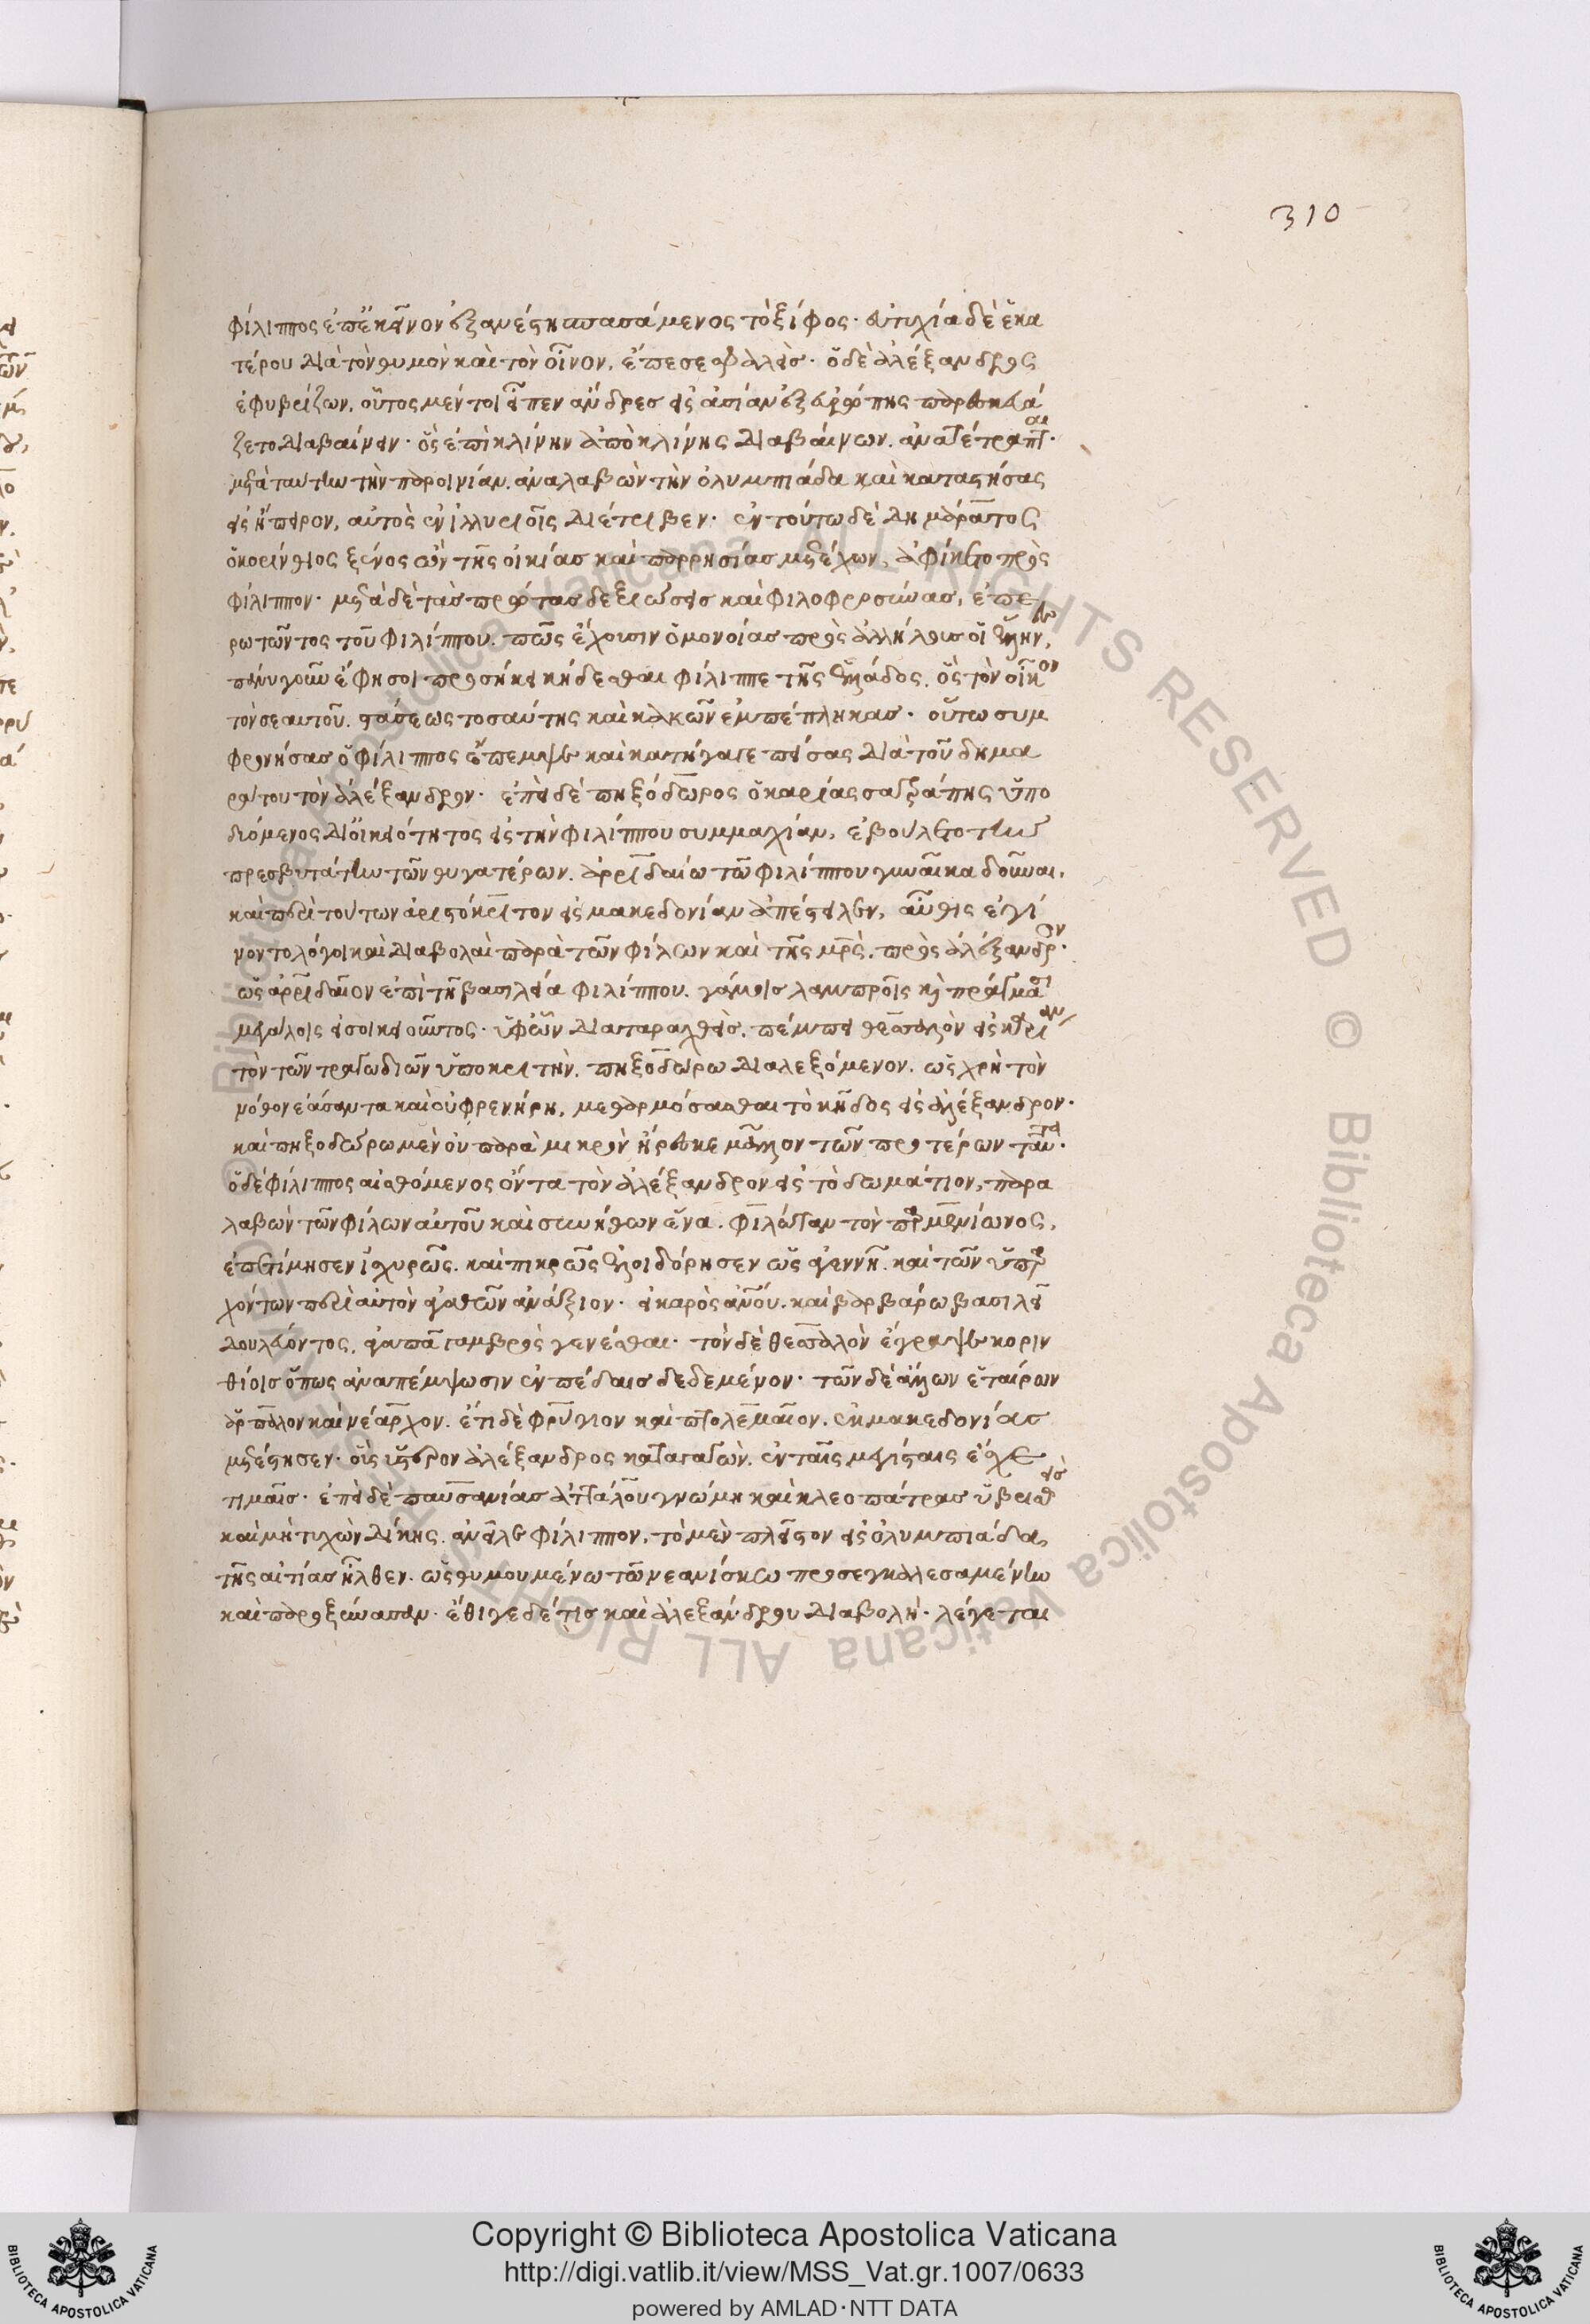 310
φίλιππος ἐπ' ἐκεῖνον ἐξανέστη σπασάμενος τὸ ξίφος· εὐτυχία δὲ ἑκα
τέρου διὰ τὸν θυμὸν καὶ τὸν οἶνον, ἔπεσε σφαλείς· ὁ δὲ ἀλέξανδρος
ἐφυβρίζων, οὗτος μέν τοι εἶπεν ἄνδρες εἰς ἀσίαν ἐξ εὐρώπης παρεσκευά
ζετο διαβαίνειν· ὃς ἐπὶ κλίνην ἀπὸ κλίνης διαβαίνων, ἀνατέτραπται·
μετὰ ταύτην τὴν παροινίαν, ἀναλαβὼν τὴν ὀλυμπιάδα καὶ καταστήσας
εἰς ἤπειρον, αὐτὸς ἐν ἰλλυριοῖς διέτριβεν· ἐν τούτω δὲ δημάρατος
ὁ κορίνθιος ξένος ὢν τῆς οἰκίας καὶ παρρησίας μετέχων, ἀφίκετο πρὸς
φίλιππον· μετὰ δὲ τὰς πρώτας δεξιώσεις καὶ φιλοφροσύνας, ἐπε
ρωτῶντος τοῦ φιλίππου, πῶς ἔχουσιν ὁμονοίας πρὸς ἀλλήλους οἱ ἕλληνες,
πάνυ γοῦν ἔφη σοι προσήκει κήδεσθαι φίλιππε τῆς ἑλλάδος, ὃς τὸν οἶκον
τὸν σεαυτοῦ, στάσεως τοσαύτης καὶ κακῶν ἐμπέπληκας· οὕτω συμ
φρονήσας ὁ φίλιππος ἔπεμψε καὶ κατήγαγε πείσας διὰ τοῦ δημα
ράτου τὸν ἀλέξανδρον· ἐπεὶ δὲ πηξόδωρος ὁ καρίας σατράπης ὑπο
δυόμενος δι' οἰκειότητος εἰς τὴν φιλίππου συμμαχίαν, ἐβούλετο τὴν
πρεσβυτάτην τῶν θυγατέρων, ἀρριδαίω τῶ φιλίππου γυναῖκα δοῦναι,
καὶ περὶ τούτων ἀριστόκριτον εἰς μακεδονίαν ἀπέστειλεν, αὖθις ἐγί
νοντο λόγοι καὶ διαβολαὶ παρὰ τῶν φίλων καὶ τῆς μρς, πρὸς ἀλέξανδρον·
ὡς ἀρριδαῖον ἐπὶ τῆ βασιλεία φιλίππου, γάμοις λαμπροῖς καὶ πράγμασι
μεγάλοις εἰσοικειοῦντος· ὑφ' ὧν διαταραχθεὶς, πέμπει θεσσαλὸν εἰς καρίαν
τὸν τῶν τραγωδιῶν ὑποκριτὴν, πηξοδώρω διαλεξόμενον, ὡς χρὴ τὸν
νόθον ἐάσαντα καὶ οὐ φρενήρη, μεθαρμόσασθαι τὸ κῆδος εἰς ἀλέξανδρον·
καὶ πηξοδώρω μὲν οὐ παρὰ μικρὸν ἤρεσκε μᾶλλον τῶν προτέρων ταῦτα·
ὁ δὲ φίλιππος αἰσθόμενος ὄντα τὸν ἀλέξανδρον εἰς τὸ δωμάτιον, παρα
λαβὼν τῶν φίλων αὐτοῦ καὶ συνήθων ἕνα, φιλώταν τὸν παρμενίωνος,
ἐπετίμησεν ἰσχυρῶς, καὶ πικρῶς ἐλοιδόρησεν ὡς ἀγεννῆ, καὶ τῶν ὑπαρ
χόντων περὶ αὐτὸν ἀγαθῶν ἀνάξιον· εἰ καρὸς ἀνου, καὶ βαρβάρω βασιλεῖ
δουλεύοντος, ἀγαπᾶ γαμβρὸς γενέσθαι· τὸν δὲ θεσσαλὸν ἔγραψε κοριν
θίοις ὅπως ἀναπέμψωσιν ἐν πέδαις δεδεμένον· τῶν δὲ ἄλλων ἑταίρων
ἅρπαλον καὶ νέαρχον, ἔτι δὲ φρύγιον καὶ πτολεμαῖον, ἐκ μακεδονίας
μετέστησεν· οὓς ὕστερον ἀλέξανδρος καταγαγὼν, ἐν ταῖς μεγίσταις ἔσχε
τιμαῖς· ἐπεὶ δὲ παυσανίας ἀττάλου γνώμη καὶ κλεοπάτρας ὑβρισθεὶς
καὶ μὴ τυχὼν δίκης, ἀνεῖλε φίλιππον, τὸ μὲν πλεῖστον εἰς ὀλυμπιάδα
τῆς αἰτίας ἦλθεν, ὡς θυμουμένω τῶ νεανίσκω προσεγκαλεσαμένην
καὶ παροξύνασαν· ἔθιγε δέ τις καὶ ἀλεξάνδρου διαβολή· λέγεται
Copyright © Biblioteca Apostolica Vaticana
http://digi.vatlib.it/view/MSS_Vat.gr.1007/0633
powered by AMLAD·NTT DATA